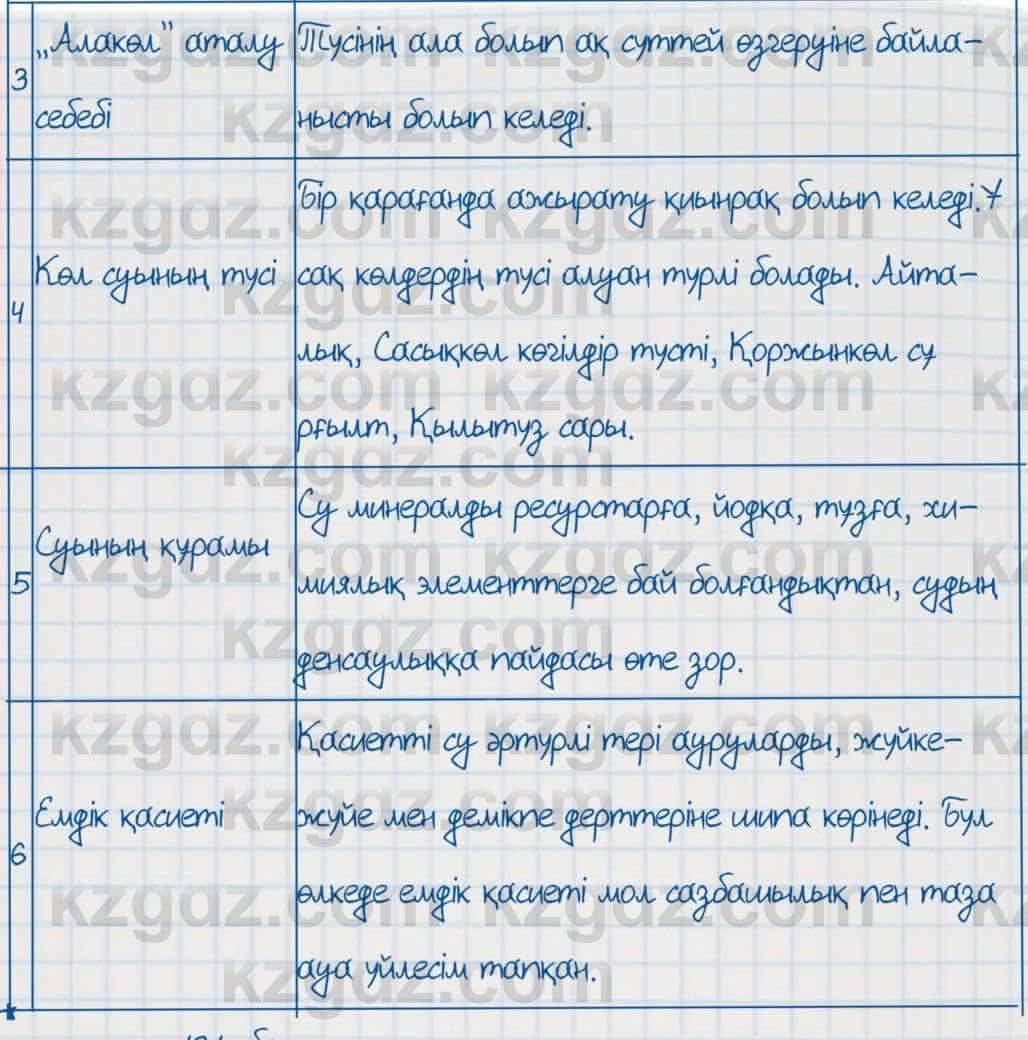 3 „Алакөл" аталу Түсінің ала болып ақ сүттей өзгеруіне байла-
себебі нысты болып келеді.
Бір қарағанда ажырату қиынрақ болып келеді.Ұ
4 Көл суының түсі сақ көлдердің түсі алуан түрлі болады. Айта-
лық, Сасықкөл көгілдір түсті, Қоржынкөл сұ
рғылт, Қылытуз сары.
Су минералды ресурстарға, йодқа, тұзға, хи-
5 Суының құрамы миялық элементтерге бай болғандықтан, судың
денсаулыққа пайдасы өте зор.
Қасиетті су әртүрлі тері ауруларды, жүйке-
6 Емдік қасиеті жүйе мен демікпе дерттеріне шипа көрінеді. Бұл
өлкеде емдік қасиеті мол сазбашылық пен таза
ауа үйлесім тапқан.
kzgdz.com